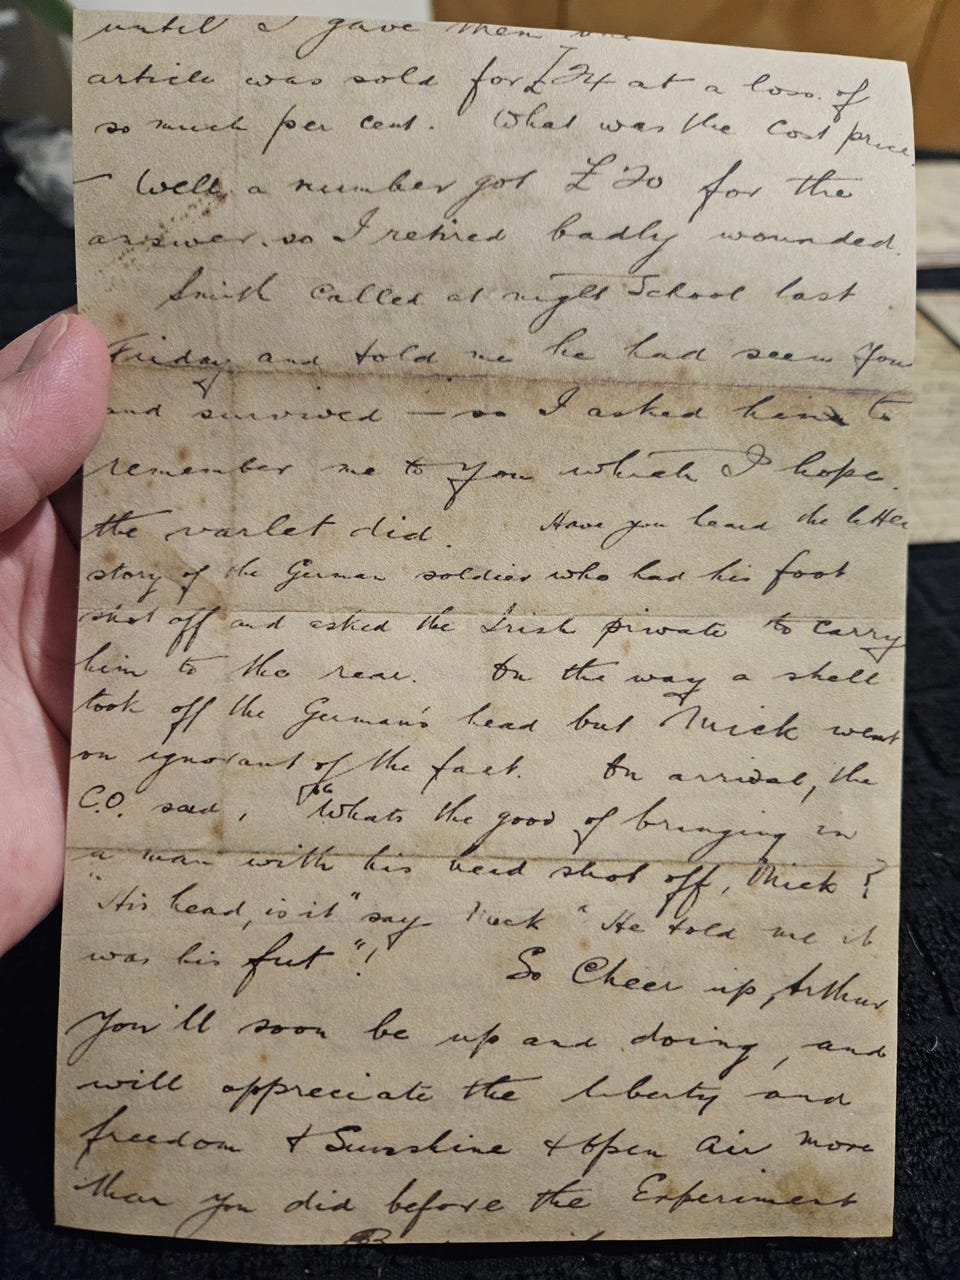 until I gave them one
article was sold for £24 at a loss of
so much per cent. What was the Cost price.
— Well a number got £20 for the
answer. so I retired badly wounded.
Smith called at night School last
Friday and told me he had seen you
and survived — so I asked him to
remember me to you which I hope.
the varlet did. Have you heard the little
story of the German soldier who had his foot
shot off and asked the Irish private to carry
him to the rear. On the way a shell
took off the German's head but Mick went
on ignorant of the fact. On arrival, the
C.O. said, "Whats the good of bringing in
a man with his head shot off, Mick?
"His head, is it" say Mick "He told me it
was his fut"!
So Cheer up, Arthur
You'll soon be up and doing, and
will appreciate the liberty and
freedom & Sunshine & open air more
than you did before the Experiment